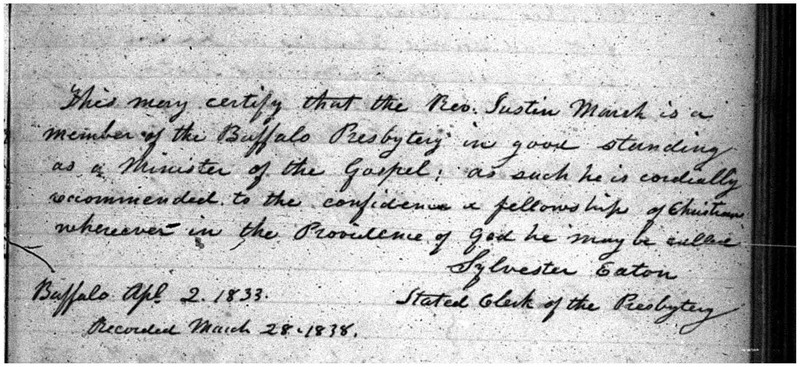 This may certify that the Rev. Justin March is a
member of the Buffalo Presbytery in good standing
as a Minister of the Gospel; as such he is cordially
recommended to the confidence & fellowship of Christians
wherever in the Providence of God he may be called
Sylvester Eaton
Buffalo Apl. 2. 1833. Stated Clerk of the Presbytery
Recorded March 28. 1838.